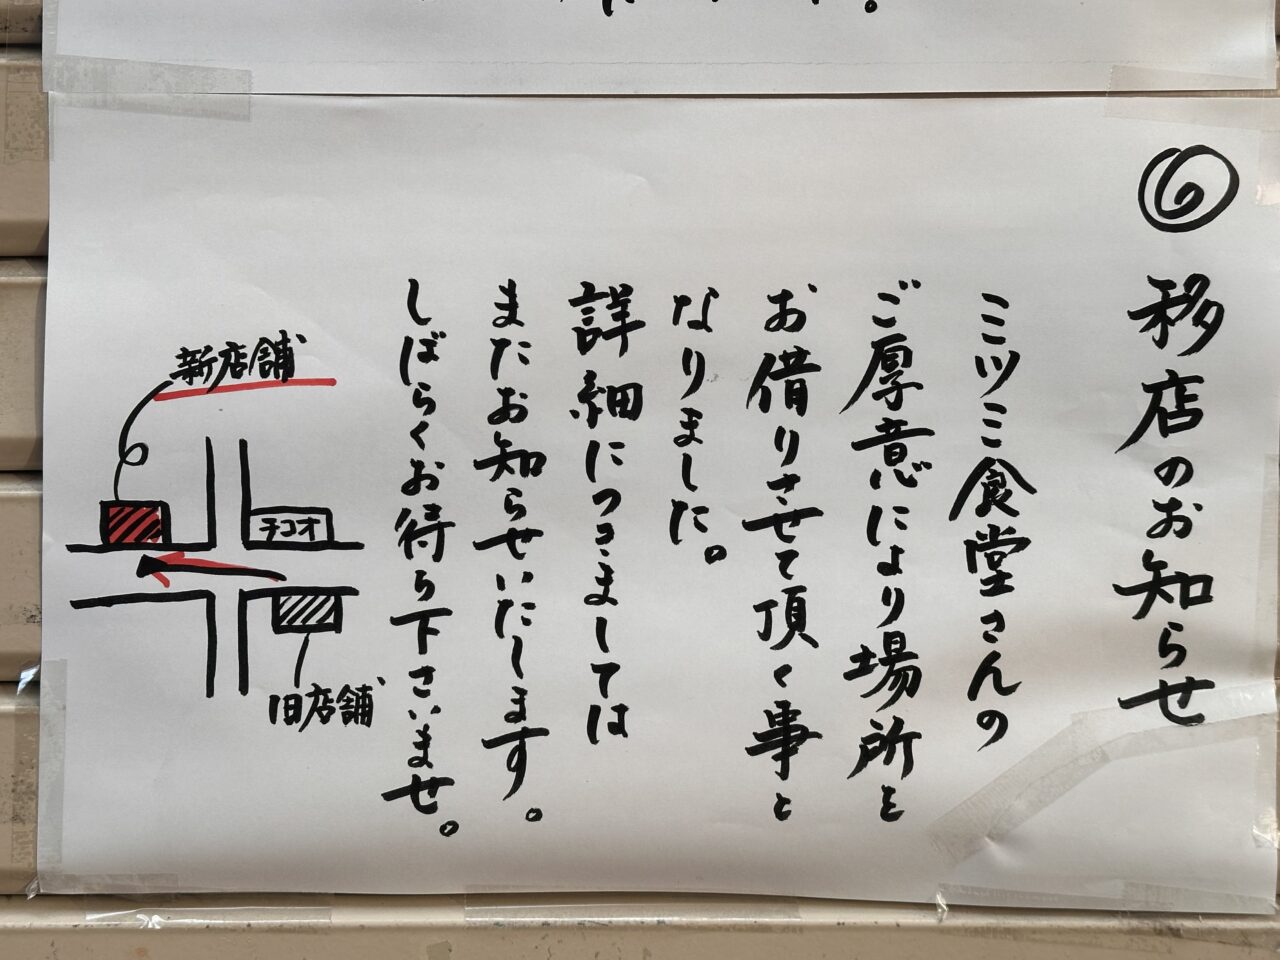 ⑥ 移店のお知らせ
ミツミ食堂さんの
ご厚意により場所を
お借りさせて頂く事と
なりました。
詳細につきましては
またお知らせいたします。
しばらくお待ち下さいませ。
新店舗
チコオ
旧店舗